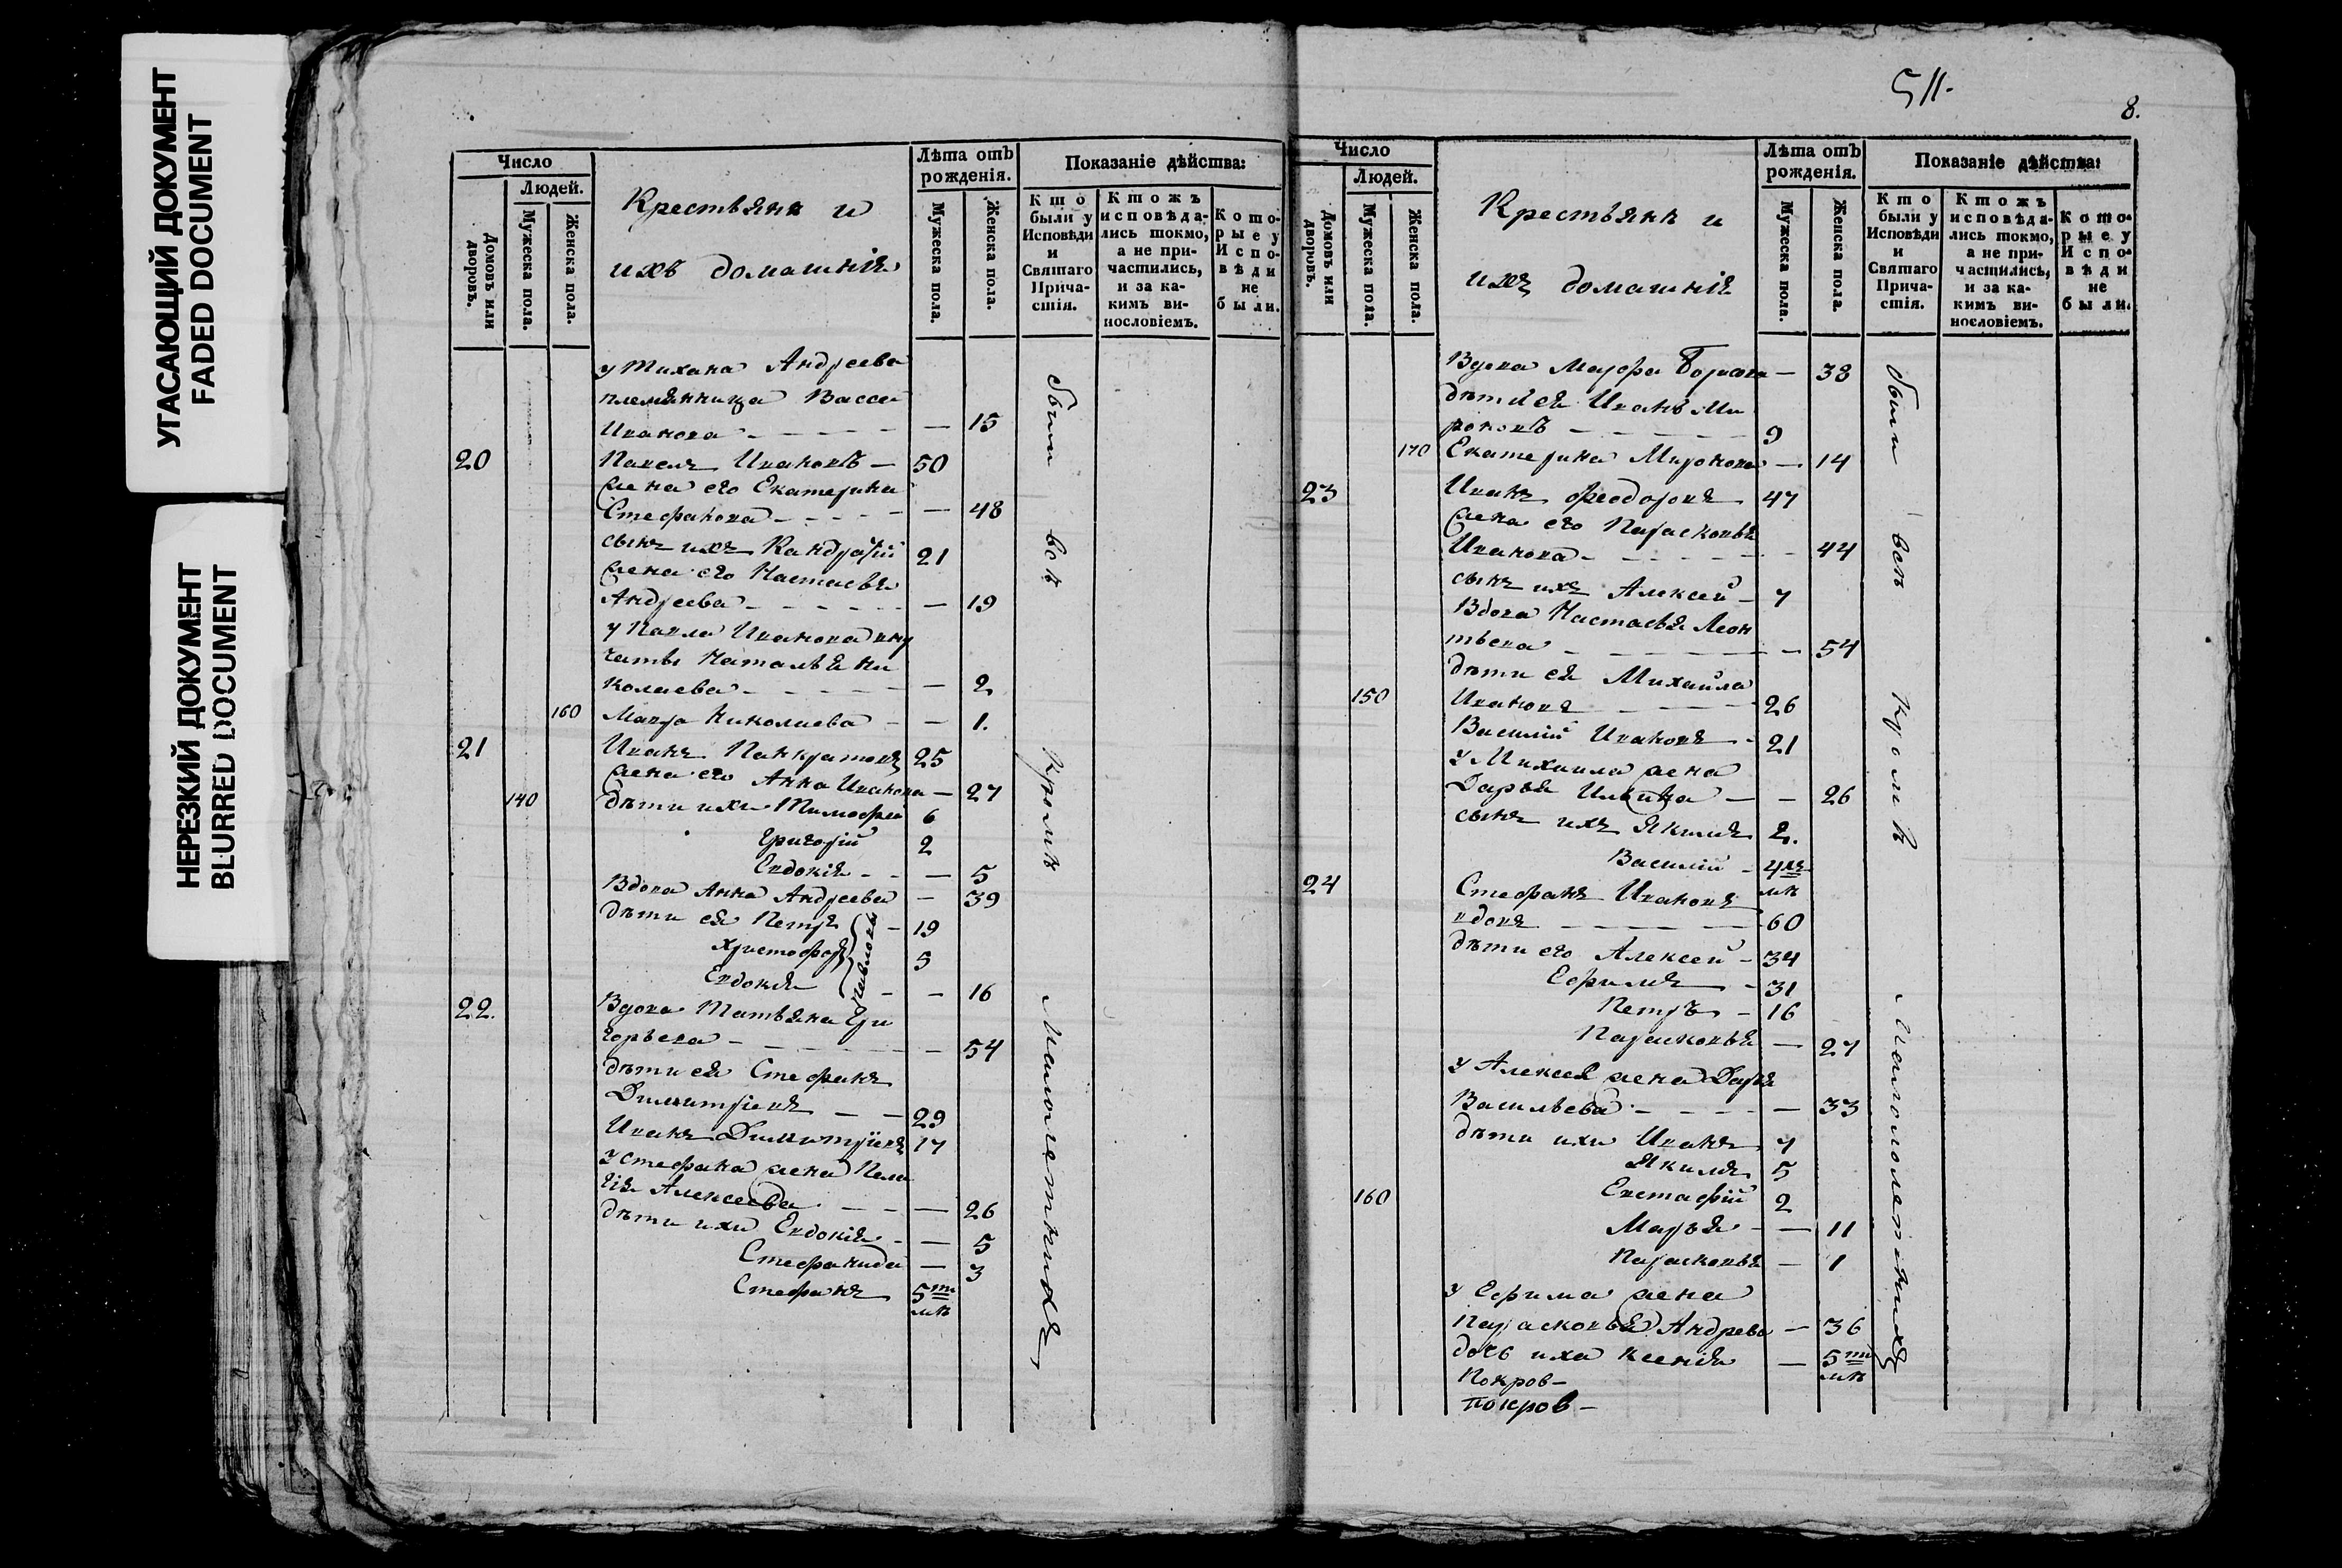 УГАСАЮЩИЙ ДОКУМЕНТ
FADED DOCUMENT
НЕРЕЗКИЙ ДОКУМЕНТ
BLURRED DOCUMENT
Число
Людей.
Домовъ или дворовъ.
Мужеска пола.
Женска пола.
Крестьянъ и
ихъ домашнія
Лѣта отъ
рожденія.
Мужеска пола.
Женска пола.
Показаніе дѣйства:
Кто
были у
Исповѣди
и
Святаго
Прича-
стія.
Ктожъ
исповѣда-
лись токмо,
а не при-
частились,
и за ка-
кимъ ви-
нословіемъ.
Кото-
рые у
Испо-
вѣди
не
были.
у Тихана Андреева
племянница Васса
Иванова — — 15
20 Павелъ Ивановъ — 50
жена его Екатерина
Стефанова — — 48
сынъ ихъ Кандратій 21
жена его Настасья
Андреева — — 19
у Павла Иванова вну
чаты Наталья Ни
колаева — — 2
160 Мавра Николаева — — 1.
21 Иванъ Панкратовъ 25
жена его Анна Иванова — 27
140 дѣти ихъ Тимофей 6
Григорій 2
Евдокія — — 5
Вдова Анна Андреева — 39
дѣти ея Петръ — 19
Христофоръ 5
Евдокія — — 16
Павловы
22. Вдова Татьяна Гри
горьева — — 54
дѣти ея Стефанъ
Димитріевъ — — 29
Иванъ Димитріевъ 17
у Стефана жена Пела
гія Алексеева — — 26
дѣти ихъ Евдокія — — 5
Стефанида — 3
Стефанъ 5ти
мѣ
были всѣ кромѣ малолетнихъ
511.
8.
Число
Людей.
Домовъ или дворовъ.
Мужеска пола.
Женска пола.
Крестьянъ и
ихъ домашнія
Лѣта отъ
рожденія.
Мужеска пола.
Женска пола.
Показаніе дѣйства:
Кто
были у
Исповѣди
и
Святаго
Прича-
стія.
Ктожъ
исповѣда-
лись токмо,
а не при-
частились,
и за ка-
кимъ ви-
нословіемъ.
Кото-
рые у
Испо-
вѣди
не
были.
Вдова Марфа — 38
дѣти ея Иванъ Ми
роновъ — 9
170 Екатерина Миронова — 14
23 Иванъ Феодоровъ 47
жена его Парасковья
Иванова — — 44
сынъ ихъ Алексей — 7
Вдова Настасья Леон
тьева — — 54
дѣти ея Михайла
150 Ивановъ — 26
Василій Ивановъ — 21
у Михаила жена
Дарья Ильина — — 26
сынъ ихъ Якимъ 2.
Василій — 4хъ
мѣ
24 Стефанъ Ивановъ
вдовъ — — 60
дѣти его Алексей — 34
Ефимъ — 31
Петръ — 16
Парасковья — 27
у Алексея жена Дарья
Васильева — — 33
дѣти ихъ Иванъ 7
Якимъ 5
160 Евстафій 2
Марья — — 11
Парасковья — 1
у Ефима жена
Парасковья Андрева — 36
дочь ихъ Ксенія — 5ти
мѣ
Покров —
покров —
были всѣ кромѣ малолетнихъ